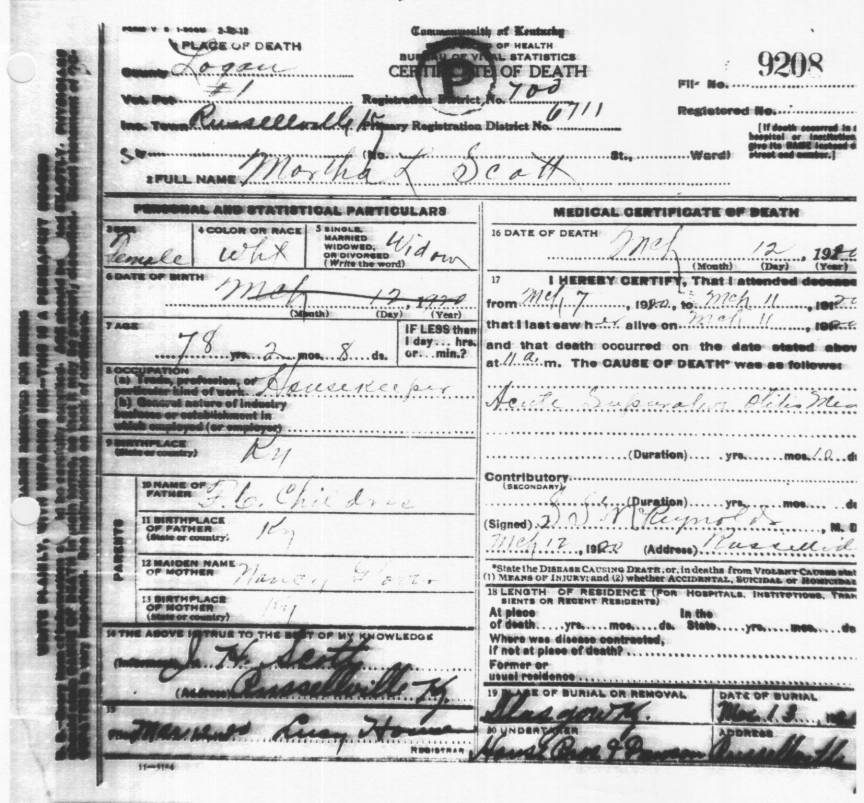 Commonwealth of Kentucky
1 PLACE OF DEATH
OF HEALTH
BUREAU OF VITAL STATISTICS
County Logan
CERTIFICATE OF DEATH
P
File No. 9208
Vot. Pct #1
Registration District No. 700
Registered No.
Inc. Town Russellville Ky
Primary Registration District No. 6711
[If death occurred in
hospital or institution
give its NAME instead
street and number.]
(No. St., Ward)
2 FULL NAME Martha L Scott
PERSONAL AND STATISTICAL PARTICULARS
Female
4 COLOR OR RACE
Whit
5 SINGLE,
MARRIED
WIDOWED,
OR DIVORCED
(Write the word)
Widow
6 DATE OF BIRTH
Mch 12, 1920
(Month) (Day) (Year)
7 AGE
78 yrs. 2 mos. 8 ds.
IF LESS than
1 day... hrs.
or... min.?
8 OCCUPATION
(a) Trade, profession, or
particular kind of work Housekeeper
(b) General nature of industry
business or establishment in
which employed (or employer)
9 BIRTHPLACE
(State or country) Ky
PARENTS
10 NAME OF
FATHER F. C. Childres
11 BIRTHPLACE
OF FATHER
(State or country) Ky
12 MAIDEN NAME
OF MOTHER Nancy
13 BIRTHPLACE
OF MOTHER
(State or country) Ky
14 THE ABOVE IS TRUE TO THE BEST OF MY KNOWLEDGE
(Informant) J. W. Scott
(Address) Russellville Ky.
15
Lucy House
REGISTRAR
11-3184
MEDICAL CERTIFICATE OF DEATH
16 DATE OF DEATH
Mch 12, 1920
(Month) (Day) (Year)
17 I HEREBY CERTIFY, That I attended deceased
from Mch 7, 1920, to Mch 11, 1920
that I last saw her alive on Mch 11, 1920
and that death occurred on the date stated above
at 11 a. m. The CAUSE OF DEATH* was as follows:
Acute Otitis
(Duration) yrs. mos. 10 ds
Contributory
(SECONDARY)
(Duration) yrs. mos. ds
(Signed) McReynolds, M. D
Mch 12, 1920 (Address)
*State the DISEASE CAUSING DEATH, or, in deaths from VIOLENT CAUSES
(1) MEANS OF INJURY; and (2) whether ACCIDENTAL, SUICIDAL or HOMICIDAL
18 LENGTH OF RESIDENCE (FOR HOSPITALS, INSTITUTIONS,
SIENTS OR RECENT RESIDENTS)
At place In the
of death yrs. mos. ds. State yrs. mos. ds
Where was disease contracted,
if not at place of death?
Former or
usual residence
19 PLACE OF BURIAL OR REMOVAL
Glasgow Ky.
DATE OF BURIAL
13,
20 UNDERTAKER
House
ADDRESS
Russellville
MARGIN RESERVED FOR BINDING
WRITE PLAINLY, WITH UNFADING INK—THIS IS A PERMANENT RECORD